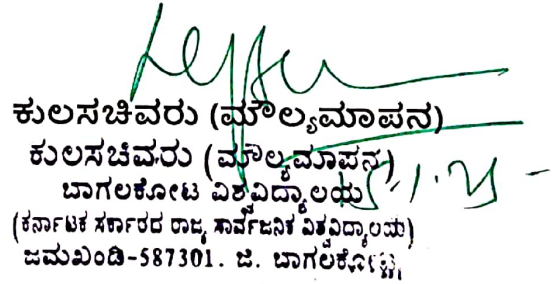 ಕುಲಸಚಿವರು (ಮೌಲ್ಯಮಾಪನ)
ಕುಲಸಚಿವರು (ಮೌಲ್ಯಮಾಪನ)
ಬಾಗಲಕೋಟ ವಿಶ್ವವಿದ್ಯಾಲಯ
(ಕರ್ನಾಟಕ ಸರ್ಕಾರದ ರಾಜ್ಯ ಸಾರ್ವಜನಿಕ ವಿಶ್ವವಿದ್ಯಾಲಯ)
ಜಮಖಂಡಿ-587301. ಜಿ. ಬಾಗಲಕೋಟ